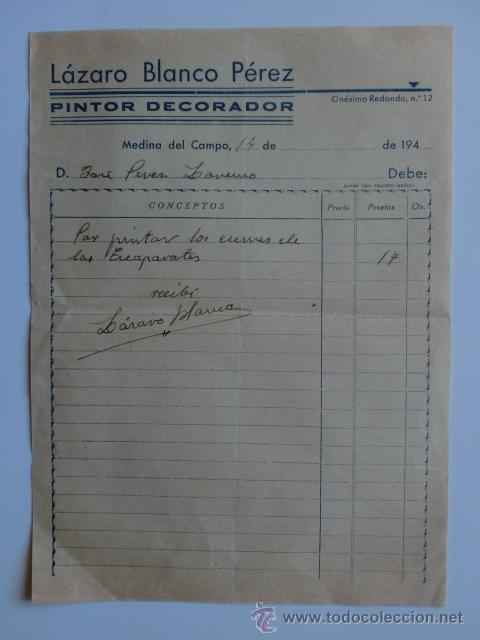 Lázaro Blanco Pérez
PINTOR DECORADOR
Onésimo Redondo, n.º 12
Medina del Campo, 14 de de 194
D. José Perez Debe:
CONCEPTOS Precio Pesetas Cts.
Por pintar los de
las Escaparates 17
recibí
Lázaro Blanco
www.todocoleccion.net